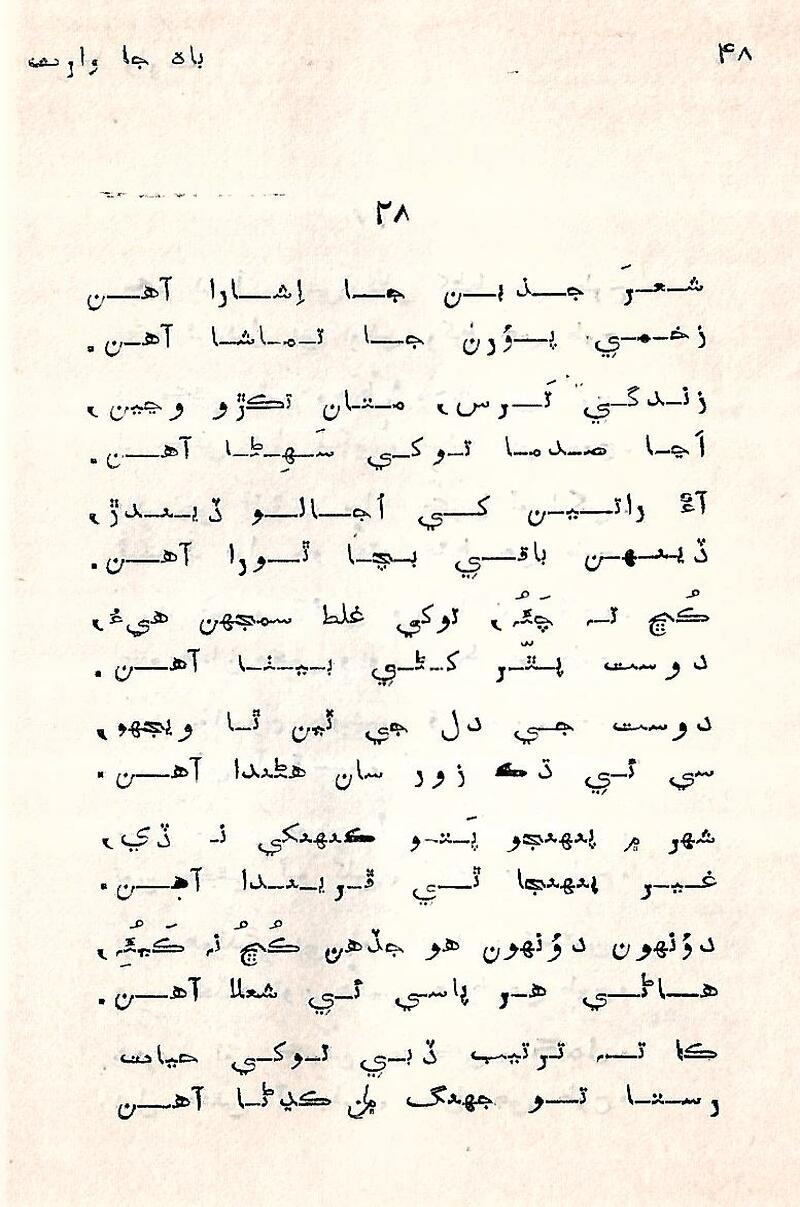 ۴۸
باھ جا وارث
۲۸
شعرَ جذبن جا اِشارا آهن
زخمي پوُرن جا تماشا آهن.
زندگي تَرس، متان تڪڙو وڃين،
اَڃا صدما توکي سَهِڻا آهن.
آءٌ راتين کي اُجالو ڏيندڙ،
ڏينهن باقي بچا ٿورا آهن.
ڪُڇ نہ چَئُہ، توکي غلط سمجھن هيءُ،
دوست پٿّر کڻي بيٺا آهن.
دوست جي دل جي ٿين ٿا ويجھو،
سي ئي ڌڪ زور سان هڻندا آهن.
شهر ۾ پنهنجو پَتو ڪنهنکي نہ ڏي،
غير پنهنجا ئي ڦريندا آهن.
دوُنهون دوُنهون هو جڏهن ڪُڇُ نہ ڪَيُئِہ،
هاڻي هر پاسي ئي شعلا آهن.
ڪا تہ ترتيب ڏبي توکي حيات
رستا تو جهنگ مان ڪڍڻا آهن